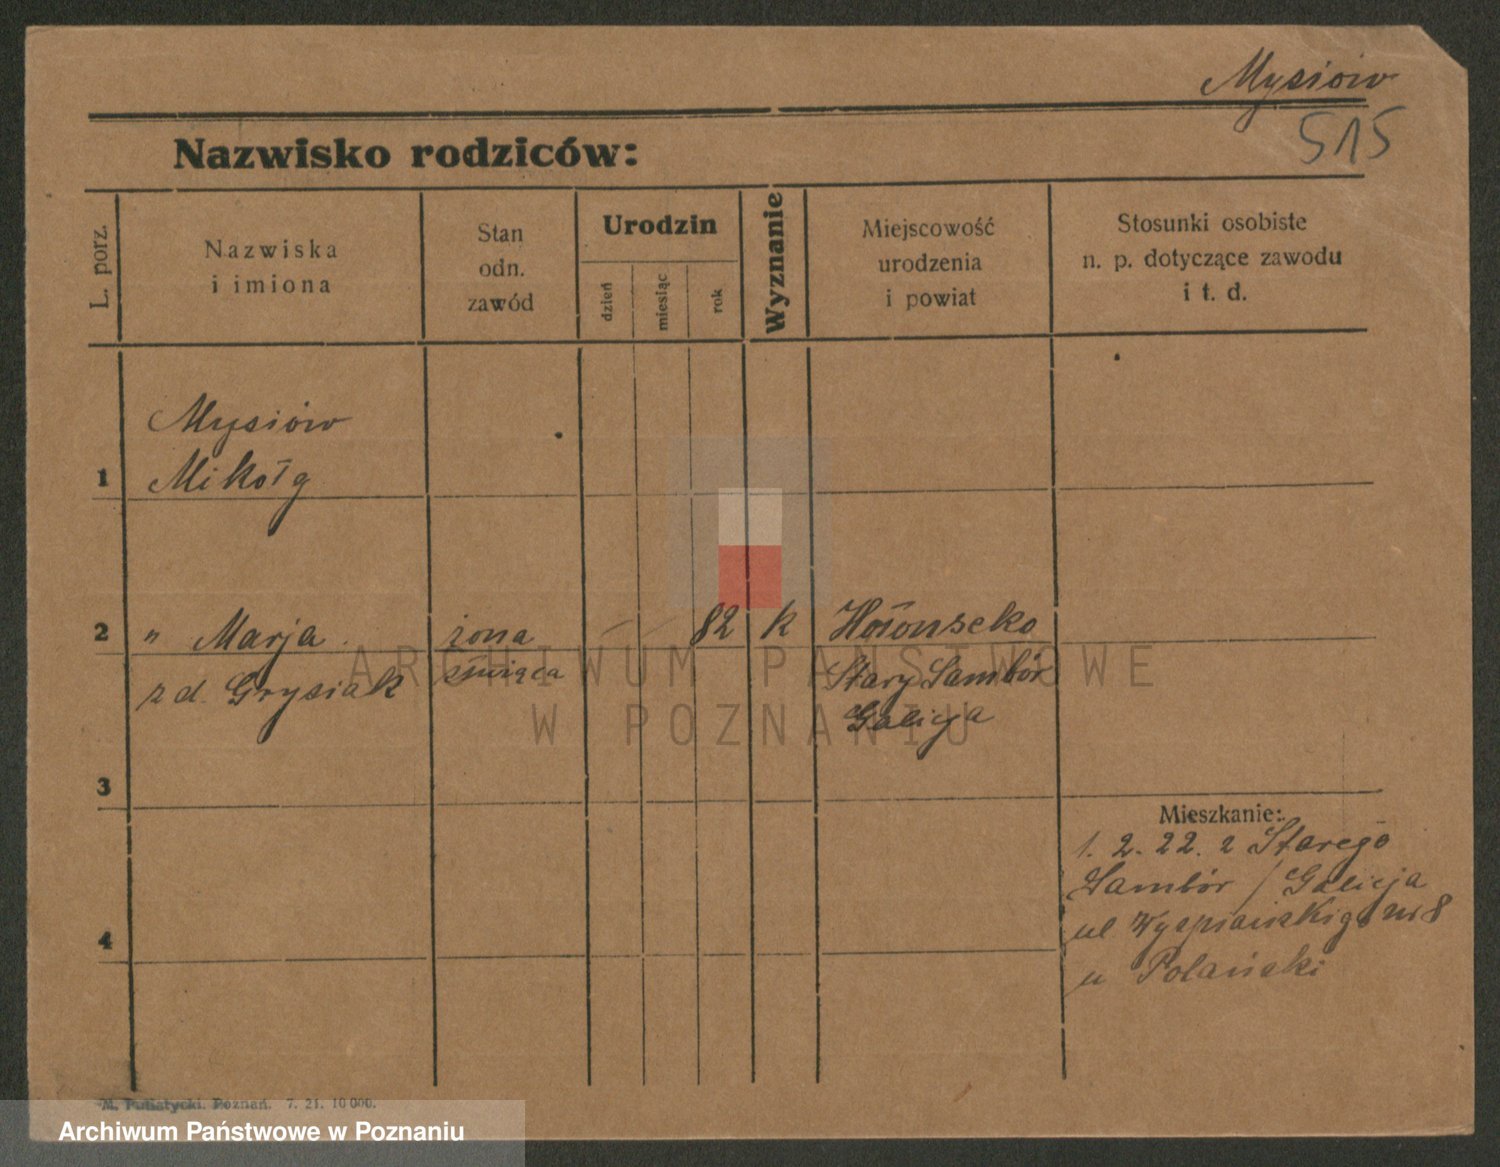 Mysiów
515
Nazwisko rodziców:
L. porz.
Nazwiska
i imiona
Stan
odn.
zawód
Urodzin
dzień
miesiąc
rok
Wyznanie
Miejscowość
urodzenia
i powiat
Stosunki osobiste
n. p. dotyczące zawodu
i t. d.
Mysiów
1 Mikołg
2 " Marja żona 82 k Hołonseko
z d. Grysiak Stary Sambór
Galicja
3
Mieszkanie:
1. 2. 22. z Starego
Sambór / Galicja
4 ul nr 8
u Polański
M. Putiatycki. Poznań. 7. 21. 10 000.
ARCHIWUM PAŃSTWOWE
W POZNANIU
Archiwum Państwowe w Poznaniu